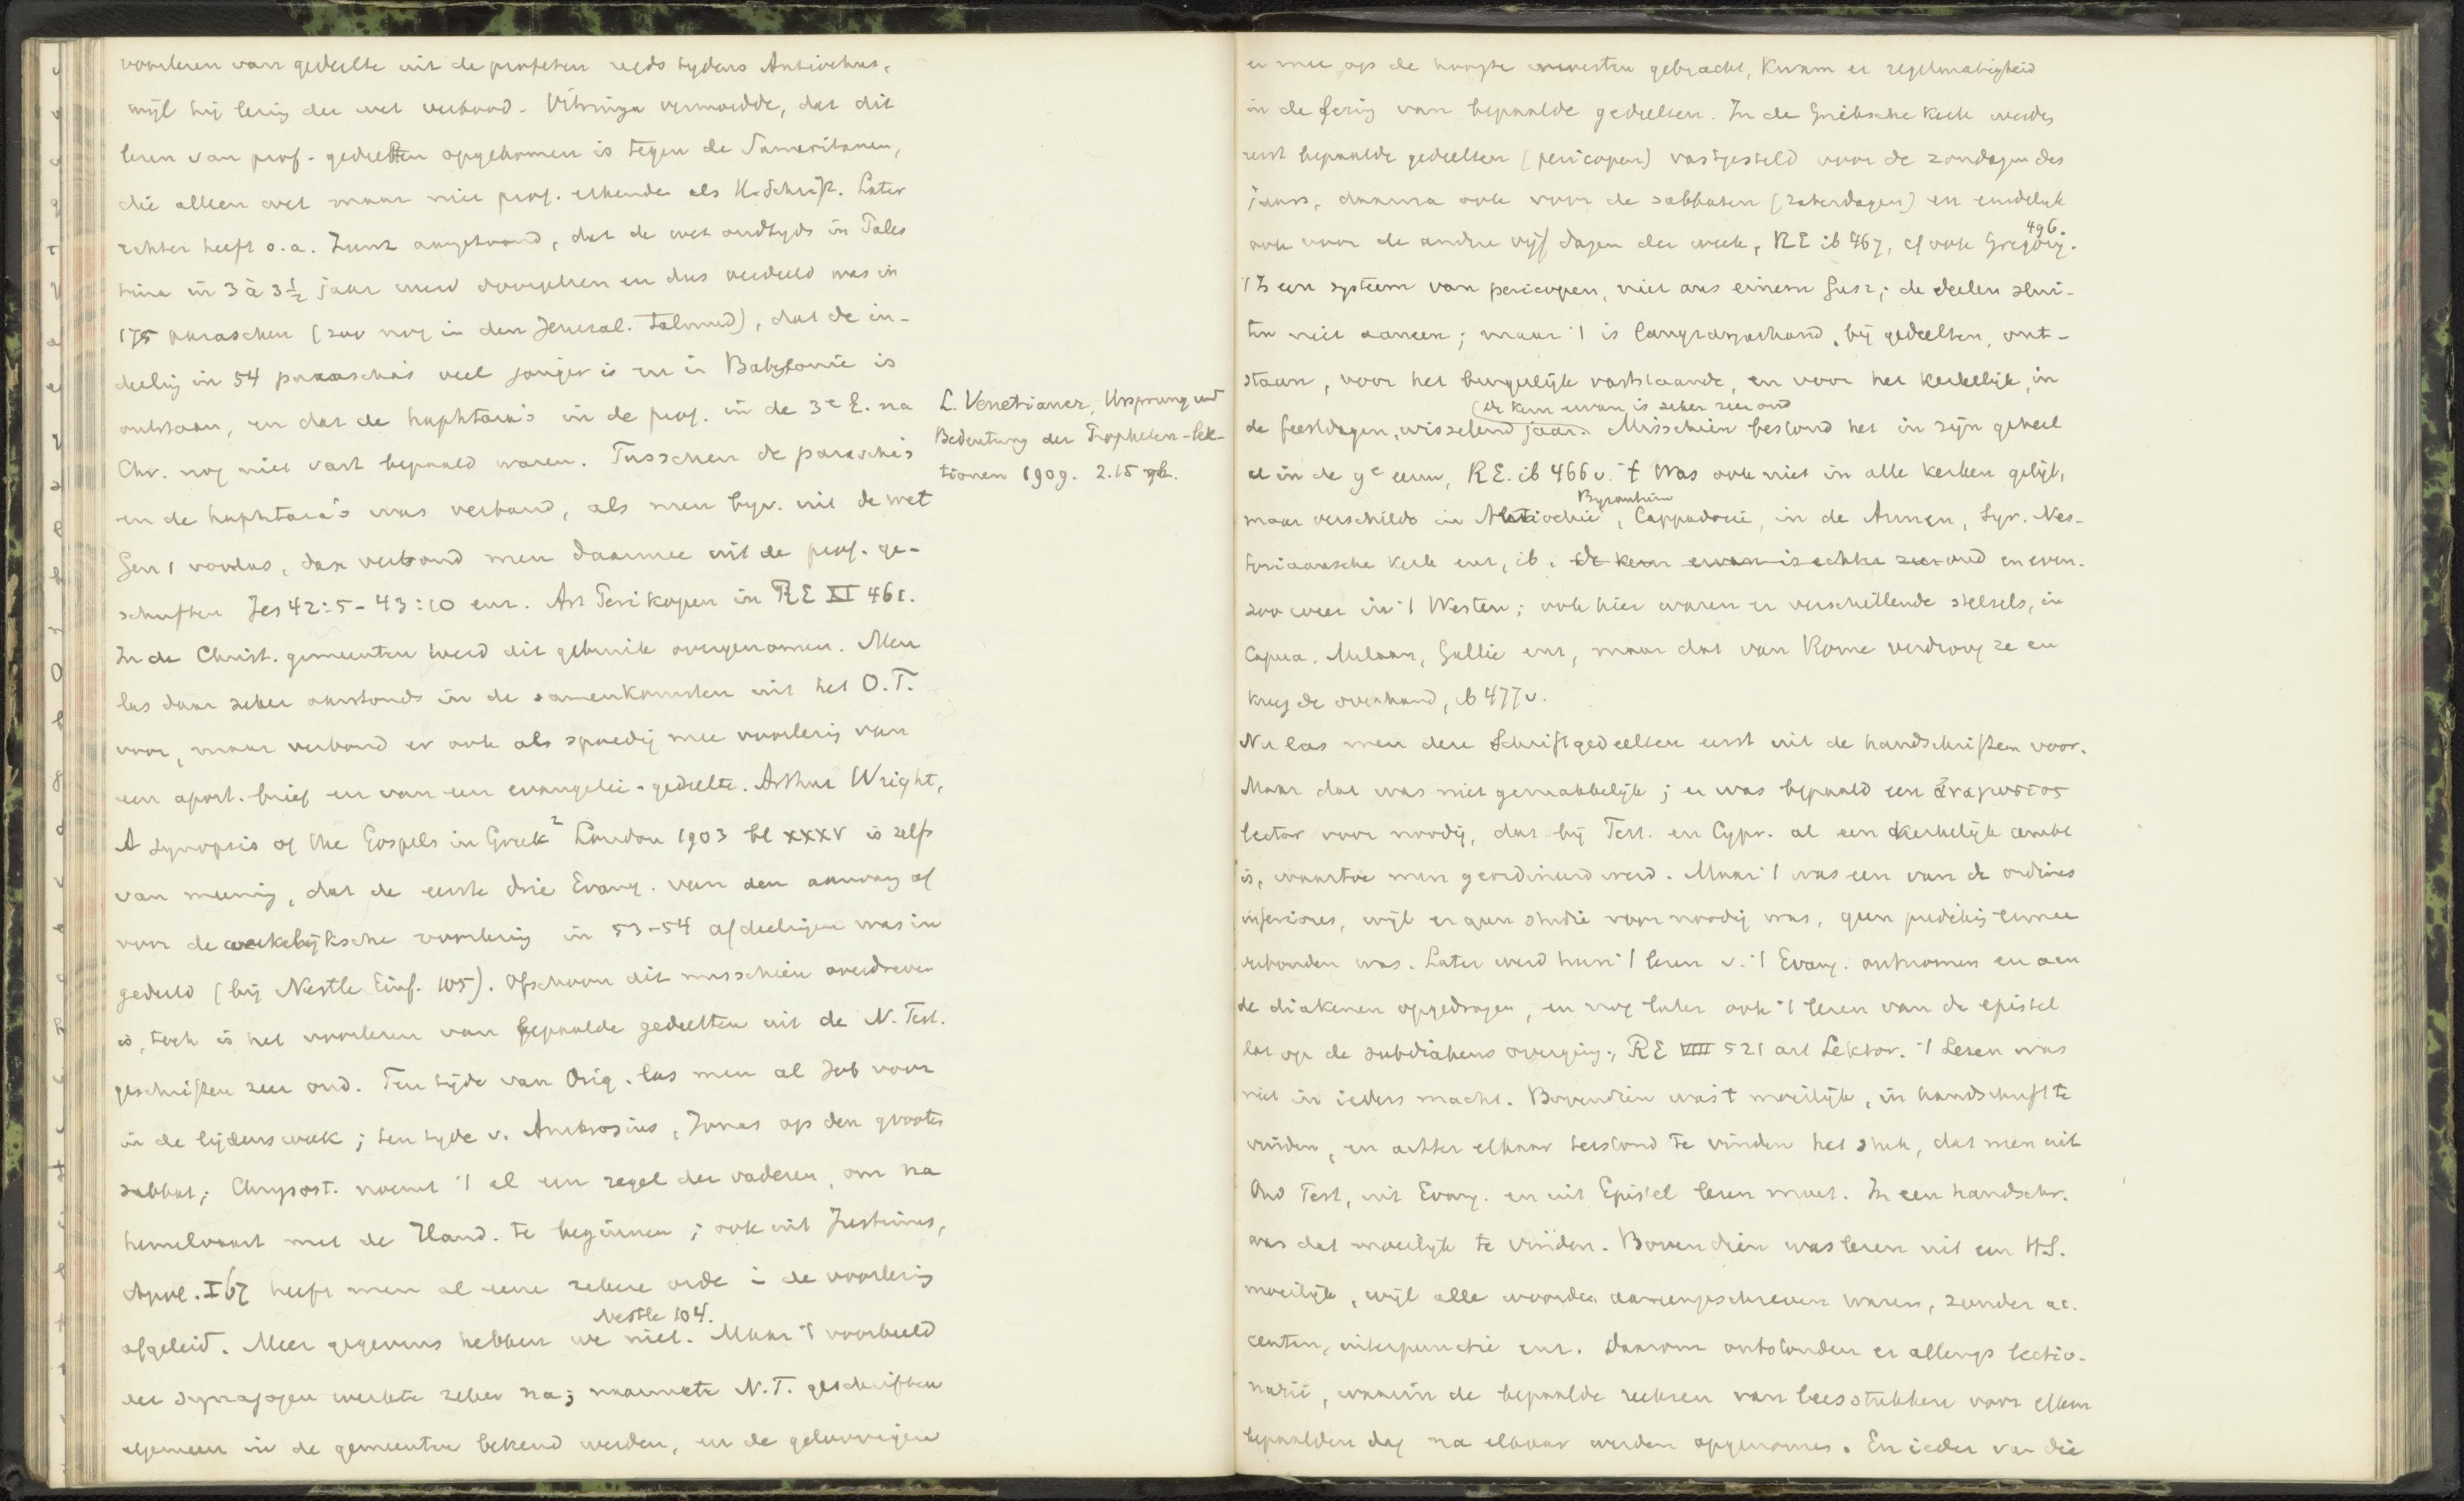 voorlezen van gedeelte uit de profeten reeds tydens Antiochus,
wijl hij lezing der wet verbood. Vitringa vermoedde, dat dit
lezen van prof. gedeelten opgekomen is tegen de Samaritanen,
die alleen wet maar niet prof. erkenden als H. Schrift. Later
echter heeft o.a. Zunz aangetoond, dat de wet oudtyds in Pales
tina in 3 à 3½ jaar werd doorgelezen en dus verdeeld was in
175 paraschen (zoo nog in den Jerusal. Talmud), dat de in-
deeling in 54 parascha's veel jonger is en in Babylonie is
ontstaan, en dat de haphtara's in de prof. in de 3e E. na
Chr. nog niet vast bepaald waren. Tusschen de parascha's
en de haphtara's was verband, als men byv. uit de wet
Gen 1 voorlas, dan verbond men daarmee uit de prof. ge-
schriften Jes 42:5-43:10 enz. Art Perikopen in RE XV 461.
In de Christ. gemeenten werd dit gebruik overgenomen. Men
las daar zeker aanstonds in de samenkomsten uit het O.T.
voor, maar verbond er ook als spoedig mee voorlezing van
een apost. brief en van een evangelie-gedeelte. Arthur Wright,
A Synopsis of the Gospels in Greek² London 1903 bl XXXV is zelfs
van meening, dat de eerste drie Evang. van den aanvang af
voor de wekelijksche voorlezing in 53-54 afdeelingen was in
gedeeld (bij Nestle Einf. 105). Ofschoon dit misschien overdreven
is, toch is het voorlezen van bepaalde gedeelten uit de N. Test.
geschriften zeer oud. Ten tijde van Orig. las men al Job voor
in de lijdensweek; ten tyde v. Ambrosius, Jonas op den grooten
sabbat; Chrysost. noemt 't al een regel der vaderen, om na
hemelvaart met de Hand. te beginnen; ook uit Justinus,
Apol. I 67 heeft men al eene zekere orde in de voorlezing
Nestle 104.
afgeleid. Meer gegevens hebben we niet. Maar 't voorbeeld
der synagogen werkte zeker na; naarmate N.T. geschriften
algemeen in de gemeenten bekend werden, en de geloovigen
L. Venetianer, Ursprung und
Bedeutung der Propheten-Lek-
tionen 1909. 2.15
er mee op de hoogte moesten gebracht, kwam er regelmatigheid
in de lezing van bepaalde gedeelten. In de Grieksche Kerk werden
eerst bepaalde gedeelten (pericopen) vastgesteld voor de zondagen des
jaars, daarna ook voor de sabbaten (zaterdagen) en eindelyk
496.
ook voor de andere vijf dagen der week, RE ib 467, cf ook Gregory.
't Is een systeem van pericopen, niet aus einem Gusz; de deelen slui-
ten niet aaneen; maar 't is langzamerhand, bij gedeelten, ont-
staan, voor het burgerlijk vaststaande, en voor het kerkelijk, in
(de kern ervan is zeker zeer oud
de feestdagen, wisselend jaar. Misschien bestond het in zijn geheel
al in de 9e eeuw, RE. ib 466 v. 't Was ook niet in alle kerken gelijk,
Byzantium
maar verschilde in Antiochie, Cappadocie, in de Armen, Syr. Nes-
toriaansche kerk enz, ib. de kern ervan is echter zeer oud en even-
zoo weer in 't Westen; ook hier waren er verschillende stelsels, in
Capua, Milaan, Gallie enz, maar dat van Rome verdrong ze en
kreeg de overhand, ib 477 v.
Nu las men deze Schriftgedeelten eerst uit de handschriften voor.
Maar dat was niet gemakkelijk; er was bepaald een ἀναγνωστης
lector voor noodig, dat bij Tert. en Cypr. al een kerkelijk ambt
is, waartoe men geordineerd werd. Maar 't was een van de ordines
inferiores, wijl er geen studie voor noodig was, geen prediking ermee
verbonden was. Later werd hun 't lezen v. 't Evang. ontnomen en aan
de diakenen opgedragen, en nog later ook 't lezen van de epistel
dat op de subdiakens overging; RE VIII 521 art Lektor. 't Lezen was
niet in ieders macht. Bovendien was 't moeilijk, in handschrift te
vinden, en achter elkaar terstond te vinden het stuk, dat men uit
Oud Test, uit Evang. en uit Epistel lezen moet. In een handschr.
was dat moeilijk te vinden. Bovendien was lezen uit een HS.
moeilijk, wijl alle woorden aaneengeschreven waren, zonder ac-
centen, interpunctie enz. Daarom ontstonden er allengs lectio-
narii, waarin de bepaalde reeksen van leesstukken voor elken
bepaalden dag na elkaar werden opgenomen. En ieder van die